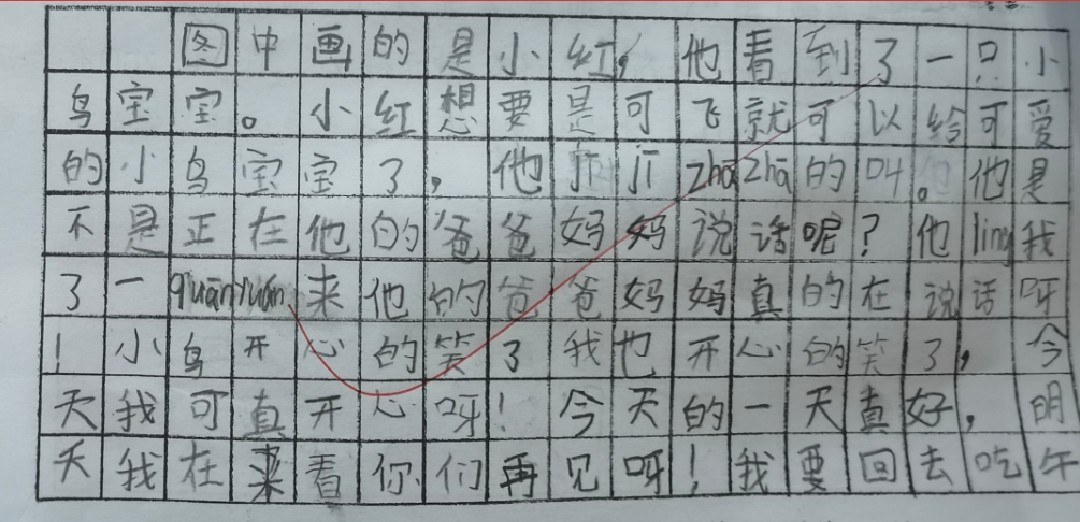 图中画的是小红，他看到了一只小
鸟宝宝。小红想要是可飞就可以给可爱
的小鸟宝宝了，他jī jī zhā zhā的叫。他是
不是正在他的爸爸妈妈说话呢？他ling我
了一quānyuán来他的爸爸妈妈真的在说话呀
！小鸟开心的笑了我也开心的笑了，今
天我可真开心呀！今天的一天真好，明
天我在来看你们再见呀！我要回去吃午